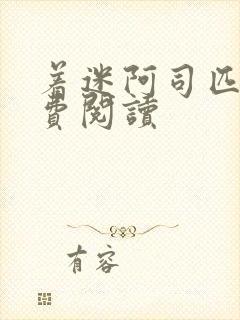 着迷阿司匹
費閱讀
有容